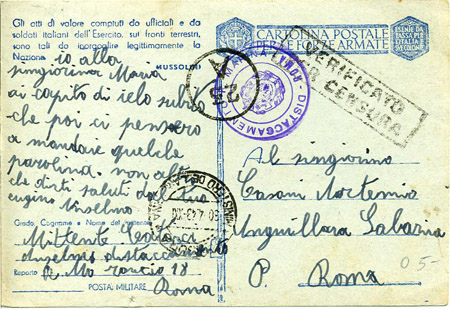 Gli atti di valore compiuti da ufficiali e da
soldati italiani dell'Esercito, sui fronti terrestri,
sono tali da inorgoglire legittimamente la
Nazione.
MUSSOLINI
io alla
singiorina Maria
ai capito di
che poi ci pensero
a mandare qualche
parolina non altro
che dirti saluti dal tuo
cugino Anselmo
Grado, Cognome e Nome del mittente
Mittente
Anselmo
Reparto
POSTA MILITARE
Roma
CARTOLINA POSTALE
PER LE FORZE ARMATE
ESENTE DA
TASSA PER
L'ITALIA
E COLONIE
VERIFICATO
PER CENSURA
DISTACCAMENTO
MARINA
ROMA
Al singiorino
Casoni
Anguillara Sabazia
P. Roma
05-